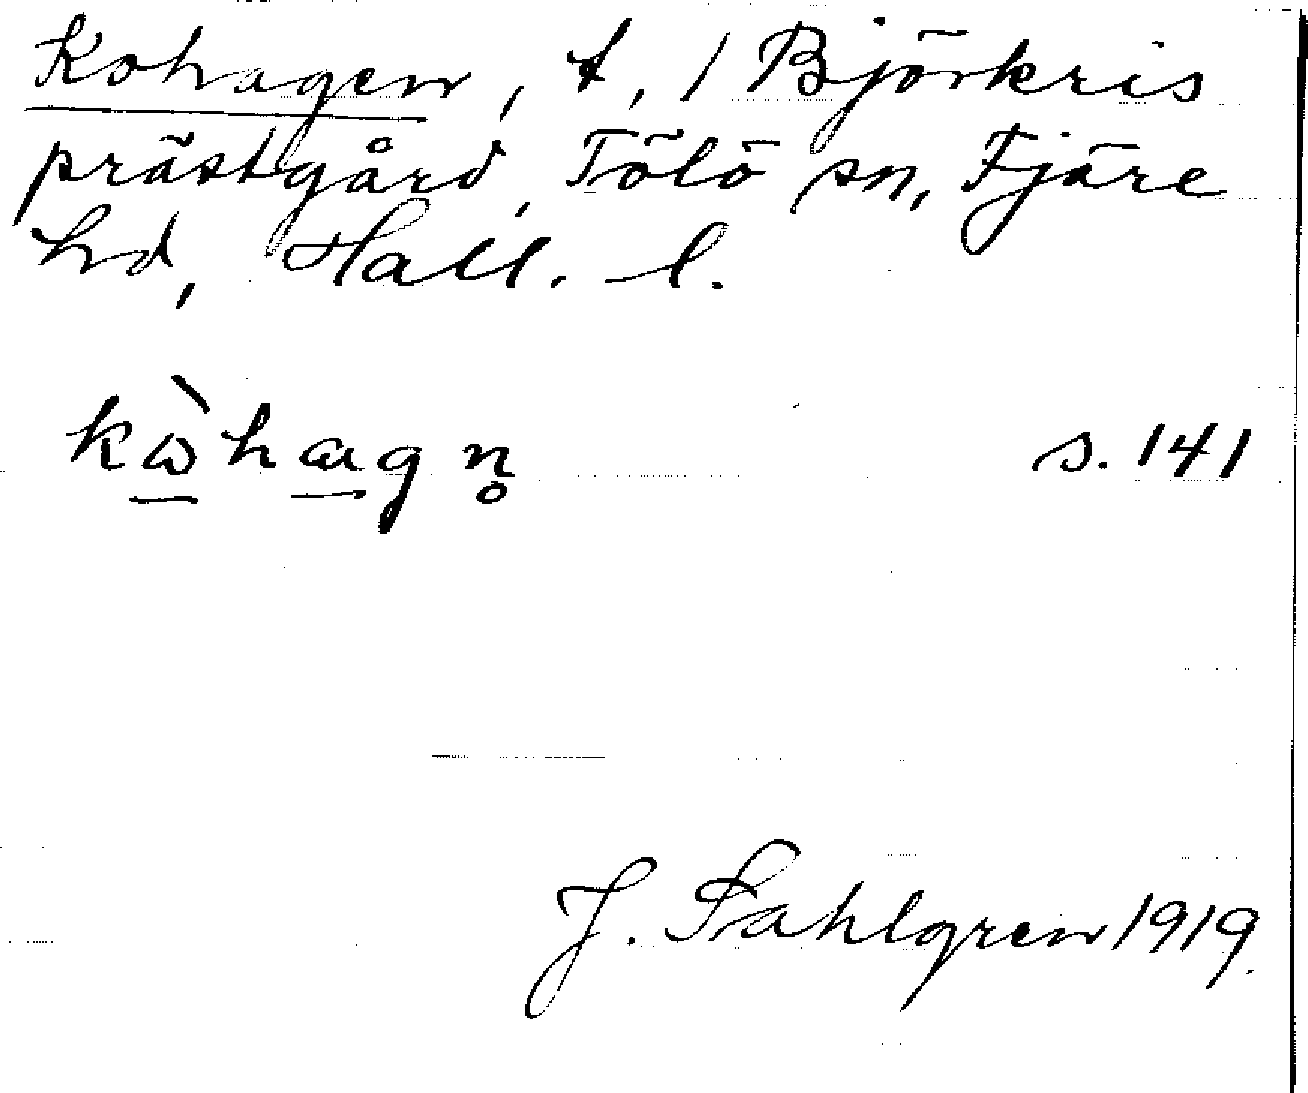 Kohagen, t, / Björkris
prästgård, Tölö sn, Fjäre
hd, Hall. l.
kὼhagn̥ s. 141
J. Sahlgren 1919.